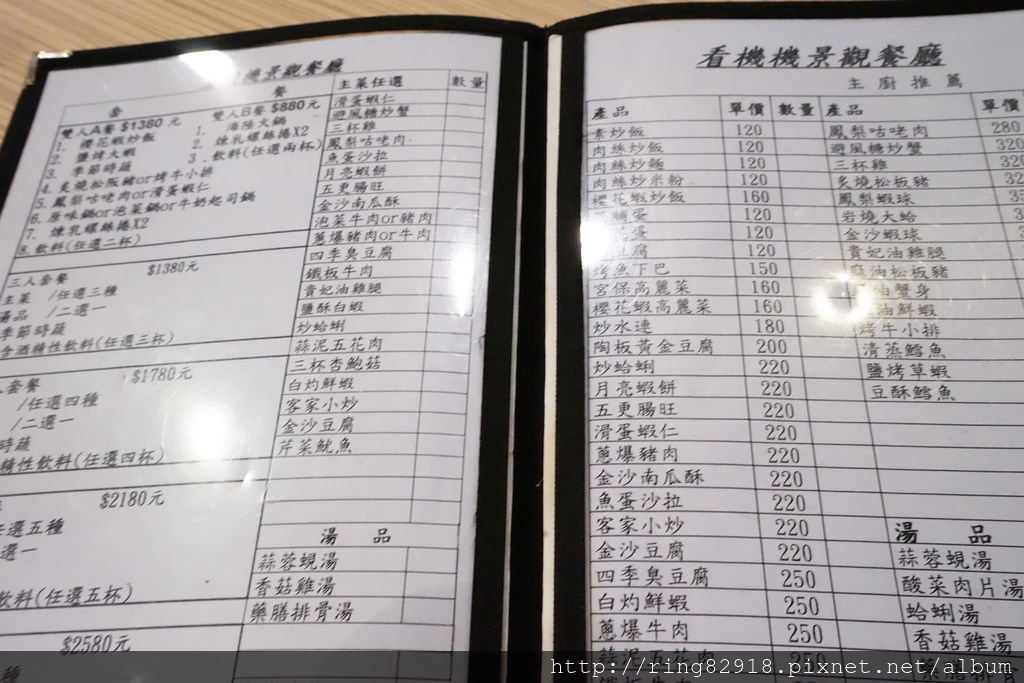 機景觀餐廳
套 餐
主菜任選 數量
雙人A餐 $1380元
1. 櫻花蝦炒飯
2. 鹽烤大蝦
3. 季節時蔬
4. 炙燒松阪豬or烤牛小排
5. 鳳梨咕咾肉or滑蛋蝦仁
6. 原味鍋or泡菜鍋or牛奶起司鍋
7. 煉乳螺絲捲X2
8. 飲料(任選二杯)
雙人B餐 $880元
1. 海陸火鍋
2. 煉乳螺絲捲X2
3. 飲料(任選兩杯)
三人套餐 $1380元
主菜 /任選三種
湯品 /二選一
季節時蔬
含酒精性飲料(任選三杯)
人套餐 $1780元
/任選四種
/二選一
時蔬
精性飲料(任選四杯)
$2180元
任選五種
選一
飲料(任選五杯)
$2580元
種
滑蛋蝦仁
避風糖炒蟹
三杯雞
鳳梨咕咾肉
魚蛋沙拉
月亮蝦餅
五更腸旺
金沙南瓜酥
泡菜牛肉or豬肉
蔥爆豬肉or牛肉
四季臭豆腐
鐵板牛肉
貴妃油雞腿
鹽酥白蝦
炒蛤蜊
蒜泥五花肉
三杯杏鮑菇
白灼鮮蝦
客家小炒
金沙豆腐
芹菜魷魚
湯 品
蒜蓉蜆湯
香菇雞湯
藥膳排骨湯
看機機景觀餐廳
主廚推薦
產品 單價 數量 產品 單價
素炒飯 120
肉絲炒飯 120
肉絲炒麵 120
肉絲炒米粉 120
櫻花蝦炒飯 160
脯蛋 120
蛋 120
豆腐 120
烤魚下巴 150
宮保高麗菜 160
櫻花蝦高麗菜 160
炒水連 180
陶板黃金豆腐 200
炒蛤蜊 220
月亮蝦餅 220
五更腸旺 220
滑蛋蝦仁 220
蔥爆豬肉 220
金沙南瓜酥 220
魚蛋沙拉 220
客家小炒 220
金沙豆腐 220
四季臭豆腐 250
白灼鮮蝦 250
蔥爆牛肉 250
蒜泥五花肉 250
鳳梨咕咾肉 280
避風糖炒蟹 320
三杯雞 320
炙燒松板豬
鳳梨蝦球
岩燒大蛤
金沙蝦球
貴妃油雞腿
油松板豬
油蟹身
油鮮蝦
烤牛小排
清蒸鱈魚
鹽烤草蝦
豆酥鱈魚
湯 品
蒜蓉蜆湯
酸菜肉片湯
蛤蜊湯
香菇雞湯
http://ring82918.pixnet.net/album